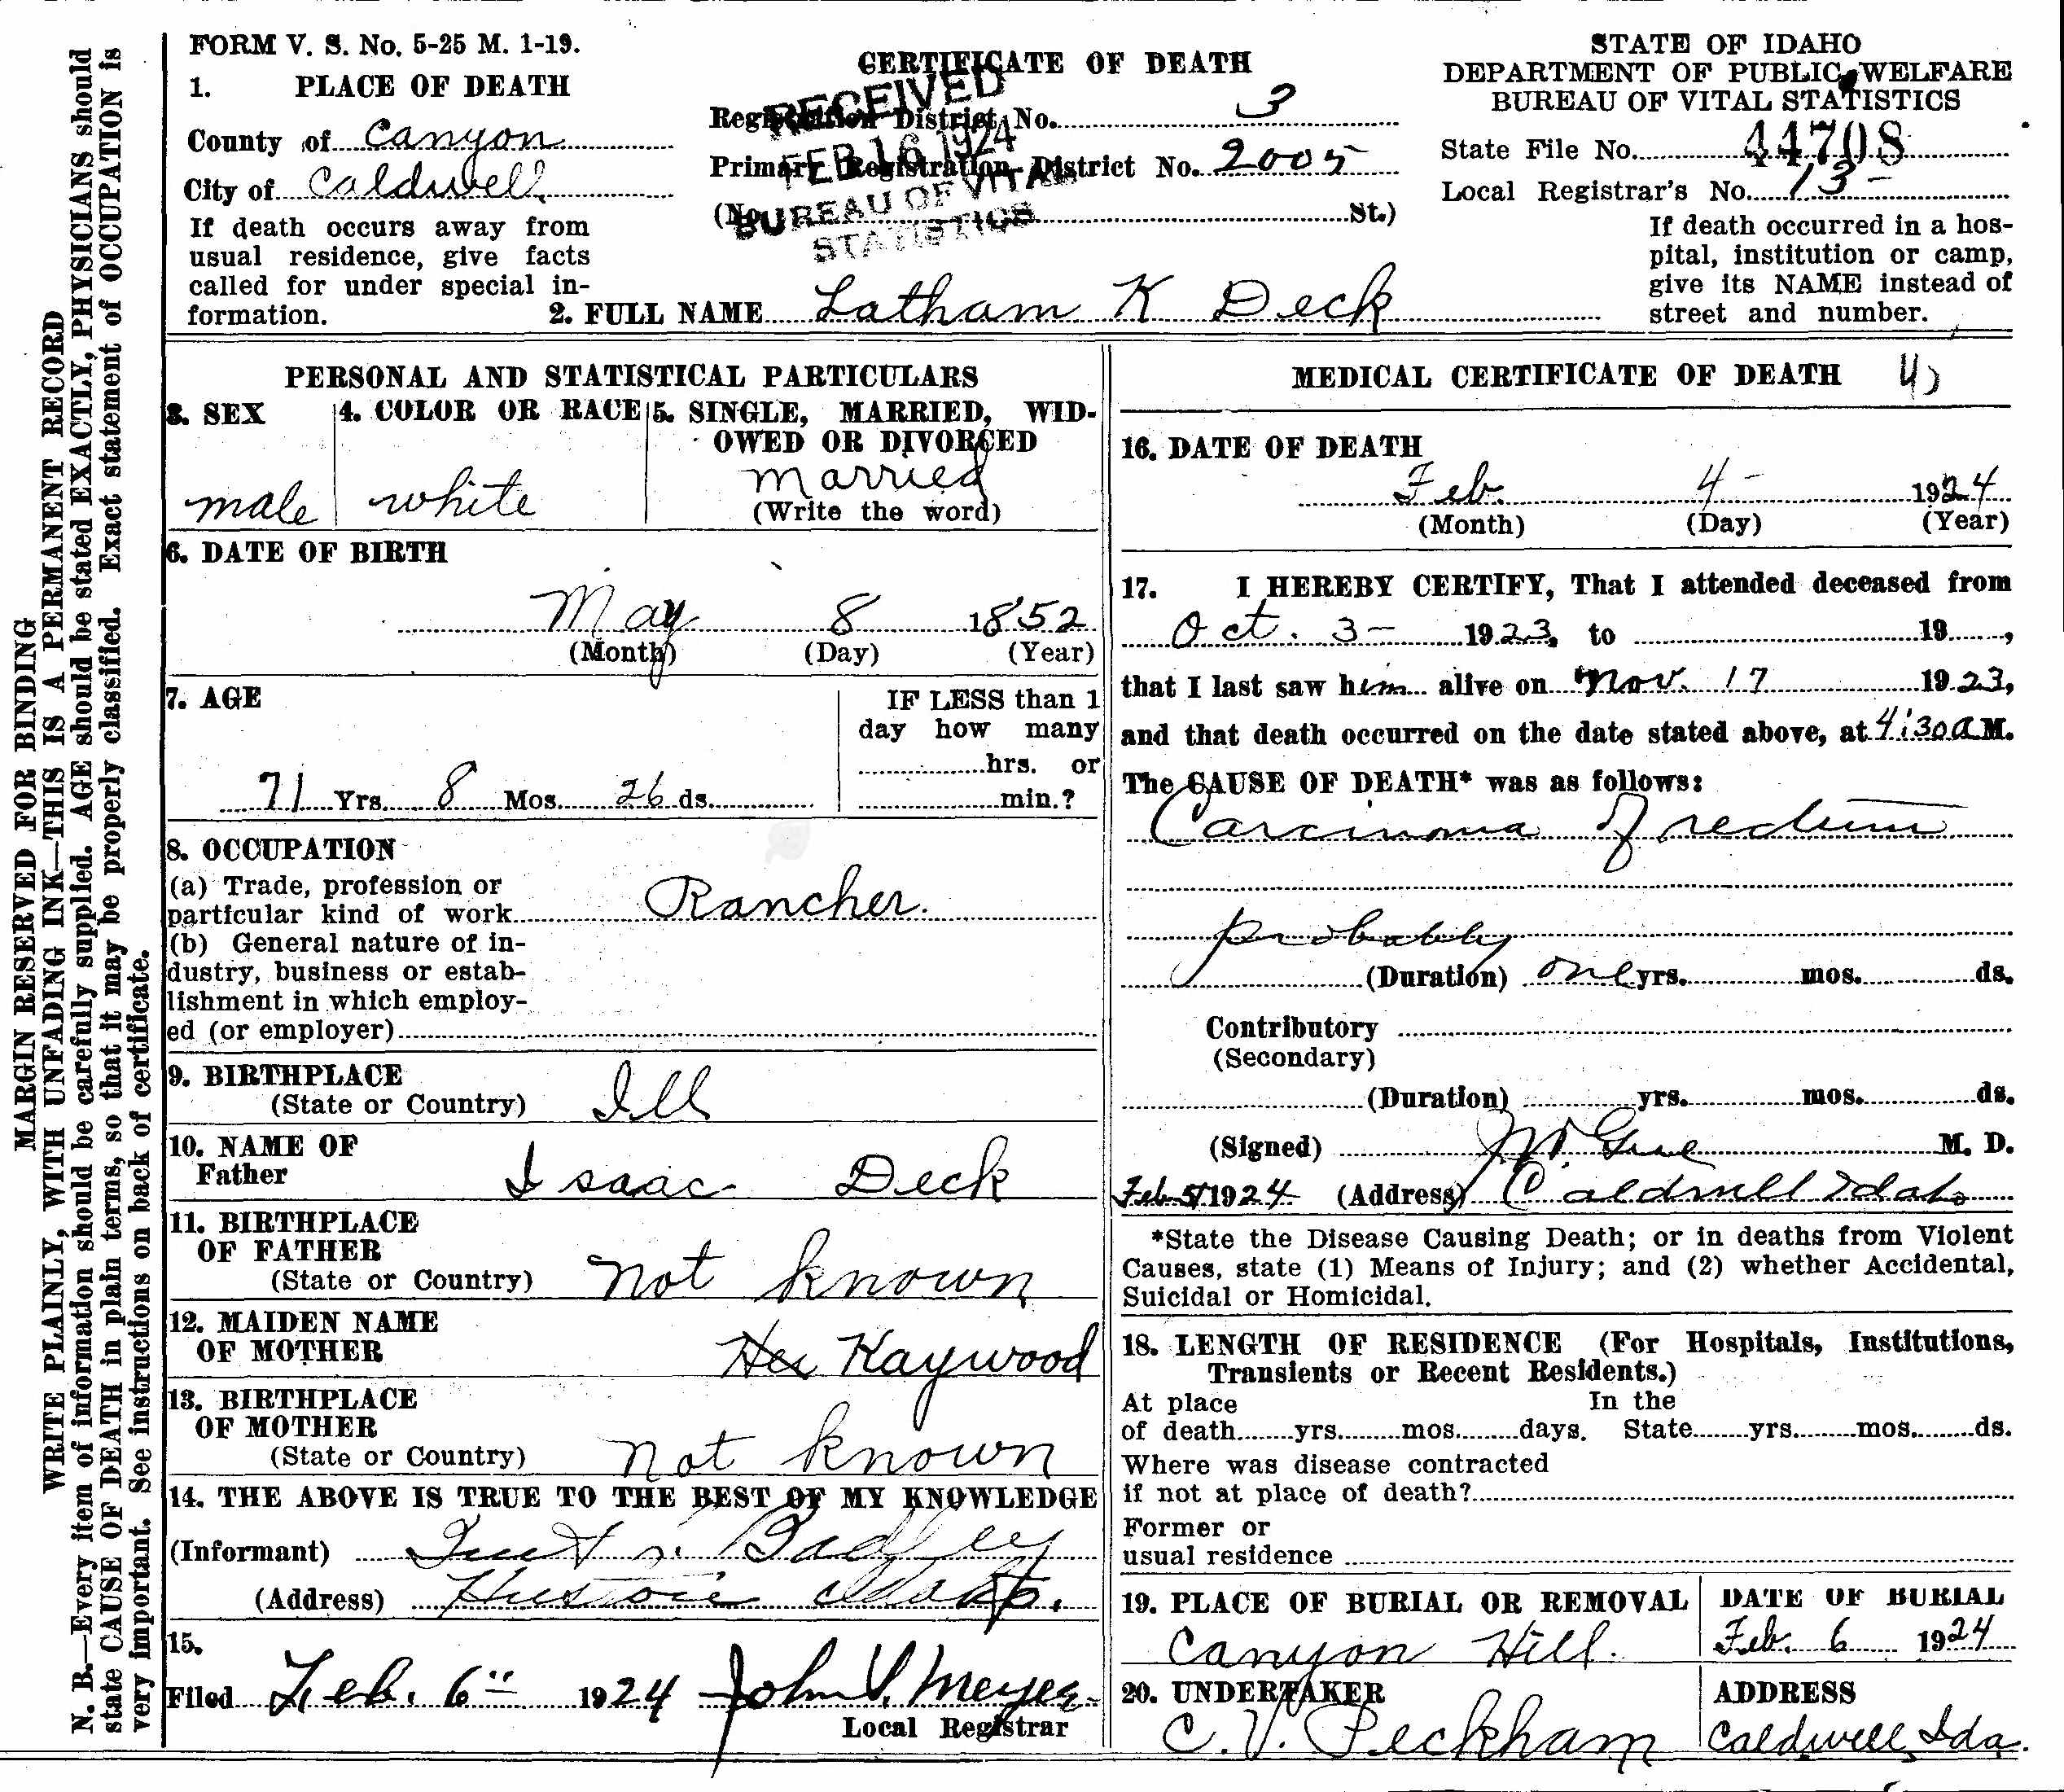 FORM V. S. No. 5-25 M. 1-19.
CERTIFICATE OF DEATH
STATE OF IDAHO
DEPARTMENT OF PUBLIC WELFARE
BUREAU OF VITAL STATISTICS
1. PLACE OF DEATH
County of Canyon
City of Caldwell
If death occurs away from
usual residence, give facts
called for under special in-
formation.
Registration District No. 3
Primary Registration District No. 2005
(No. St.)
RECEIVED
FEB 16 1924
BUREAU OF VITAL
STATISTICS
State File No. 44708
Local Registrar's No. 13-
If death occurred in a hos-
pital, institution or camp,
give its NAME instead of
street and number.
2. FULL NAME Latham K Deck
PERSONAL AND STATISTICAL PARTICULARS
3. SEX 4. COLOR OR RACE 5. SINGLE, MARRIED, WID-
OWED OR DIVORCED
male white married
(Write the word)
6. DATE OF BIRTH
May 8 1852
(Month) (Day) (Year)
7. AGE
IF LESS than 1
day how many
hrs. or
71 Yrs. 8 Mos. 26 ds. min.?
8. OCCUPATION
(a) Trade, profession or
particular kind of work Rancher.
(b) General nature of in-
dustry, business or estab-
lishment in which employ-
ed (or employer)
9. BIRTHPLACE
(State or Country) Ill
10. NAME OF
Father Isaac Deck
11. BIRTHPLACE
OF FATHER
(State or Country) not known
12. MAIDEN NAME
OF MOTHER Haywood
13. BIRTHPLACE
OF MOTHER
(State or Country) not known
14. THE ABOVE IS TRUE TO THE BEST OF MY KNOWLEDGE
(Informant) Badley
(Address) Idaho.
15.
Filed Feb. 6" 1924 John V. Meyer
Local Registrar
MEDICAL CERTIFICATE OF DEATH
16. DATE OF DEATH
Feb. 4- 1924
(Month) (Day) (Year)
17. I HEREBY CERTIFY, That I attended deceased from
Oct. 3- 1923, to 19 ,
that I last saw him alive on Nov. 17 1923,
and that death occurred on the date stated above, at 4:30 a M.
The CAUSE OF DEATH* was as follows:
Carcinoma of rectum
probably
(Duration) one yrs. mos. ds.
Contributory
(Secondary)
(Duration) yrs. mos. ds.
(Signed) M. D.
Feb 5 1924 (Address) Caldwell Idaho
*State the Disease Causing Death; or in deaths from Violent
Causes, state (1) Means of Injury; and (2) whether Accidental,
Suicidal or Homicidal.
18. LENGTH OF RESIDENCE (For Hospitals, Institutions,
Transients or Recent Residents.)
At place In the
of death yrs. mos. days. State yrs. mos. ds.
Where was disease contracted
if not at place of death?
Former or
usual residence
19. PLACE OF BURIAL OR REMOVAL DATE OF BURIAL
Canyon Hill. Feb. 6 1924
20. UNDERTAKER ADDRESS
C. V. Peckham Caldwell, Ida.
MARGIN RESERVED FOR BINDING
WRITE PLAINLY, WITH UNFADING INK—THIS IS A PERMANENT RECORD
N. B.—Every item of information should be carefully supplied. AGE should be stated EXACTLY, PHYSICIANS should
state CAUSE OF DEATH in plain terms, so that it may be properly classified. Exact statement of OCCUPATION is
very important. See instructions on back of certificate.